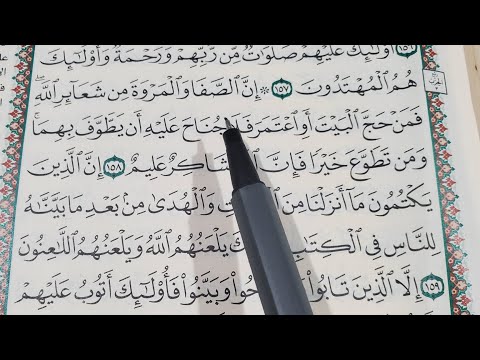 ١٥٦ أُو۟لَـٰٓئِكَ عَلَيْهِمْ صَلَوَٰتٌ مِّن رَّبِّهِمْ وَرَحْمَةٌ وَأُو۟لَـٰٓئِكَ
هُمُ ٱلْمُهْتَدُونَ ١٥٧ ۞ إِنَّ ٱلصَّفَا وَٱلْمَرْوَةَ مِن شَعَآئِرِ ٱللَّهِ ۖ
فَمَنْ حَجَّ ٱلْبَيْتَ أَوِ ٱعْتَمَرَ جُنَاحَ عَلَيْهِ أَن يَطَّوَّفَ بِهِمَا ۚ
وَمَن تَطَوَّعَ خَيْرًا فَإِنَّ شَاكِرٌ عَلِيمٌ ١٥٨ إِنَّ ٱلَّذِينَ
يَكْتُمُونَ مَآ أَنزَلْنَا مِنَ وَٱلْهُدَىٰ مِنۢ بَعْدِ مَا بَيَّنَّـٰهُ
لِلنَّاسِ فِى ٱلْكِتَـٰبِ يَلْعَنُهُمُ ٱللَّهُ وَيَلْعَنُهُمُ ٱللَّـٰعِنُونَ
١٥٩ إِلَّا ٱلَّذِينَ تَابُوا۟ وَبَيَّنُوا۟ فَأُو۟لَـٰٓئِكَ أَتُوبُ عَلَيْهِمْ